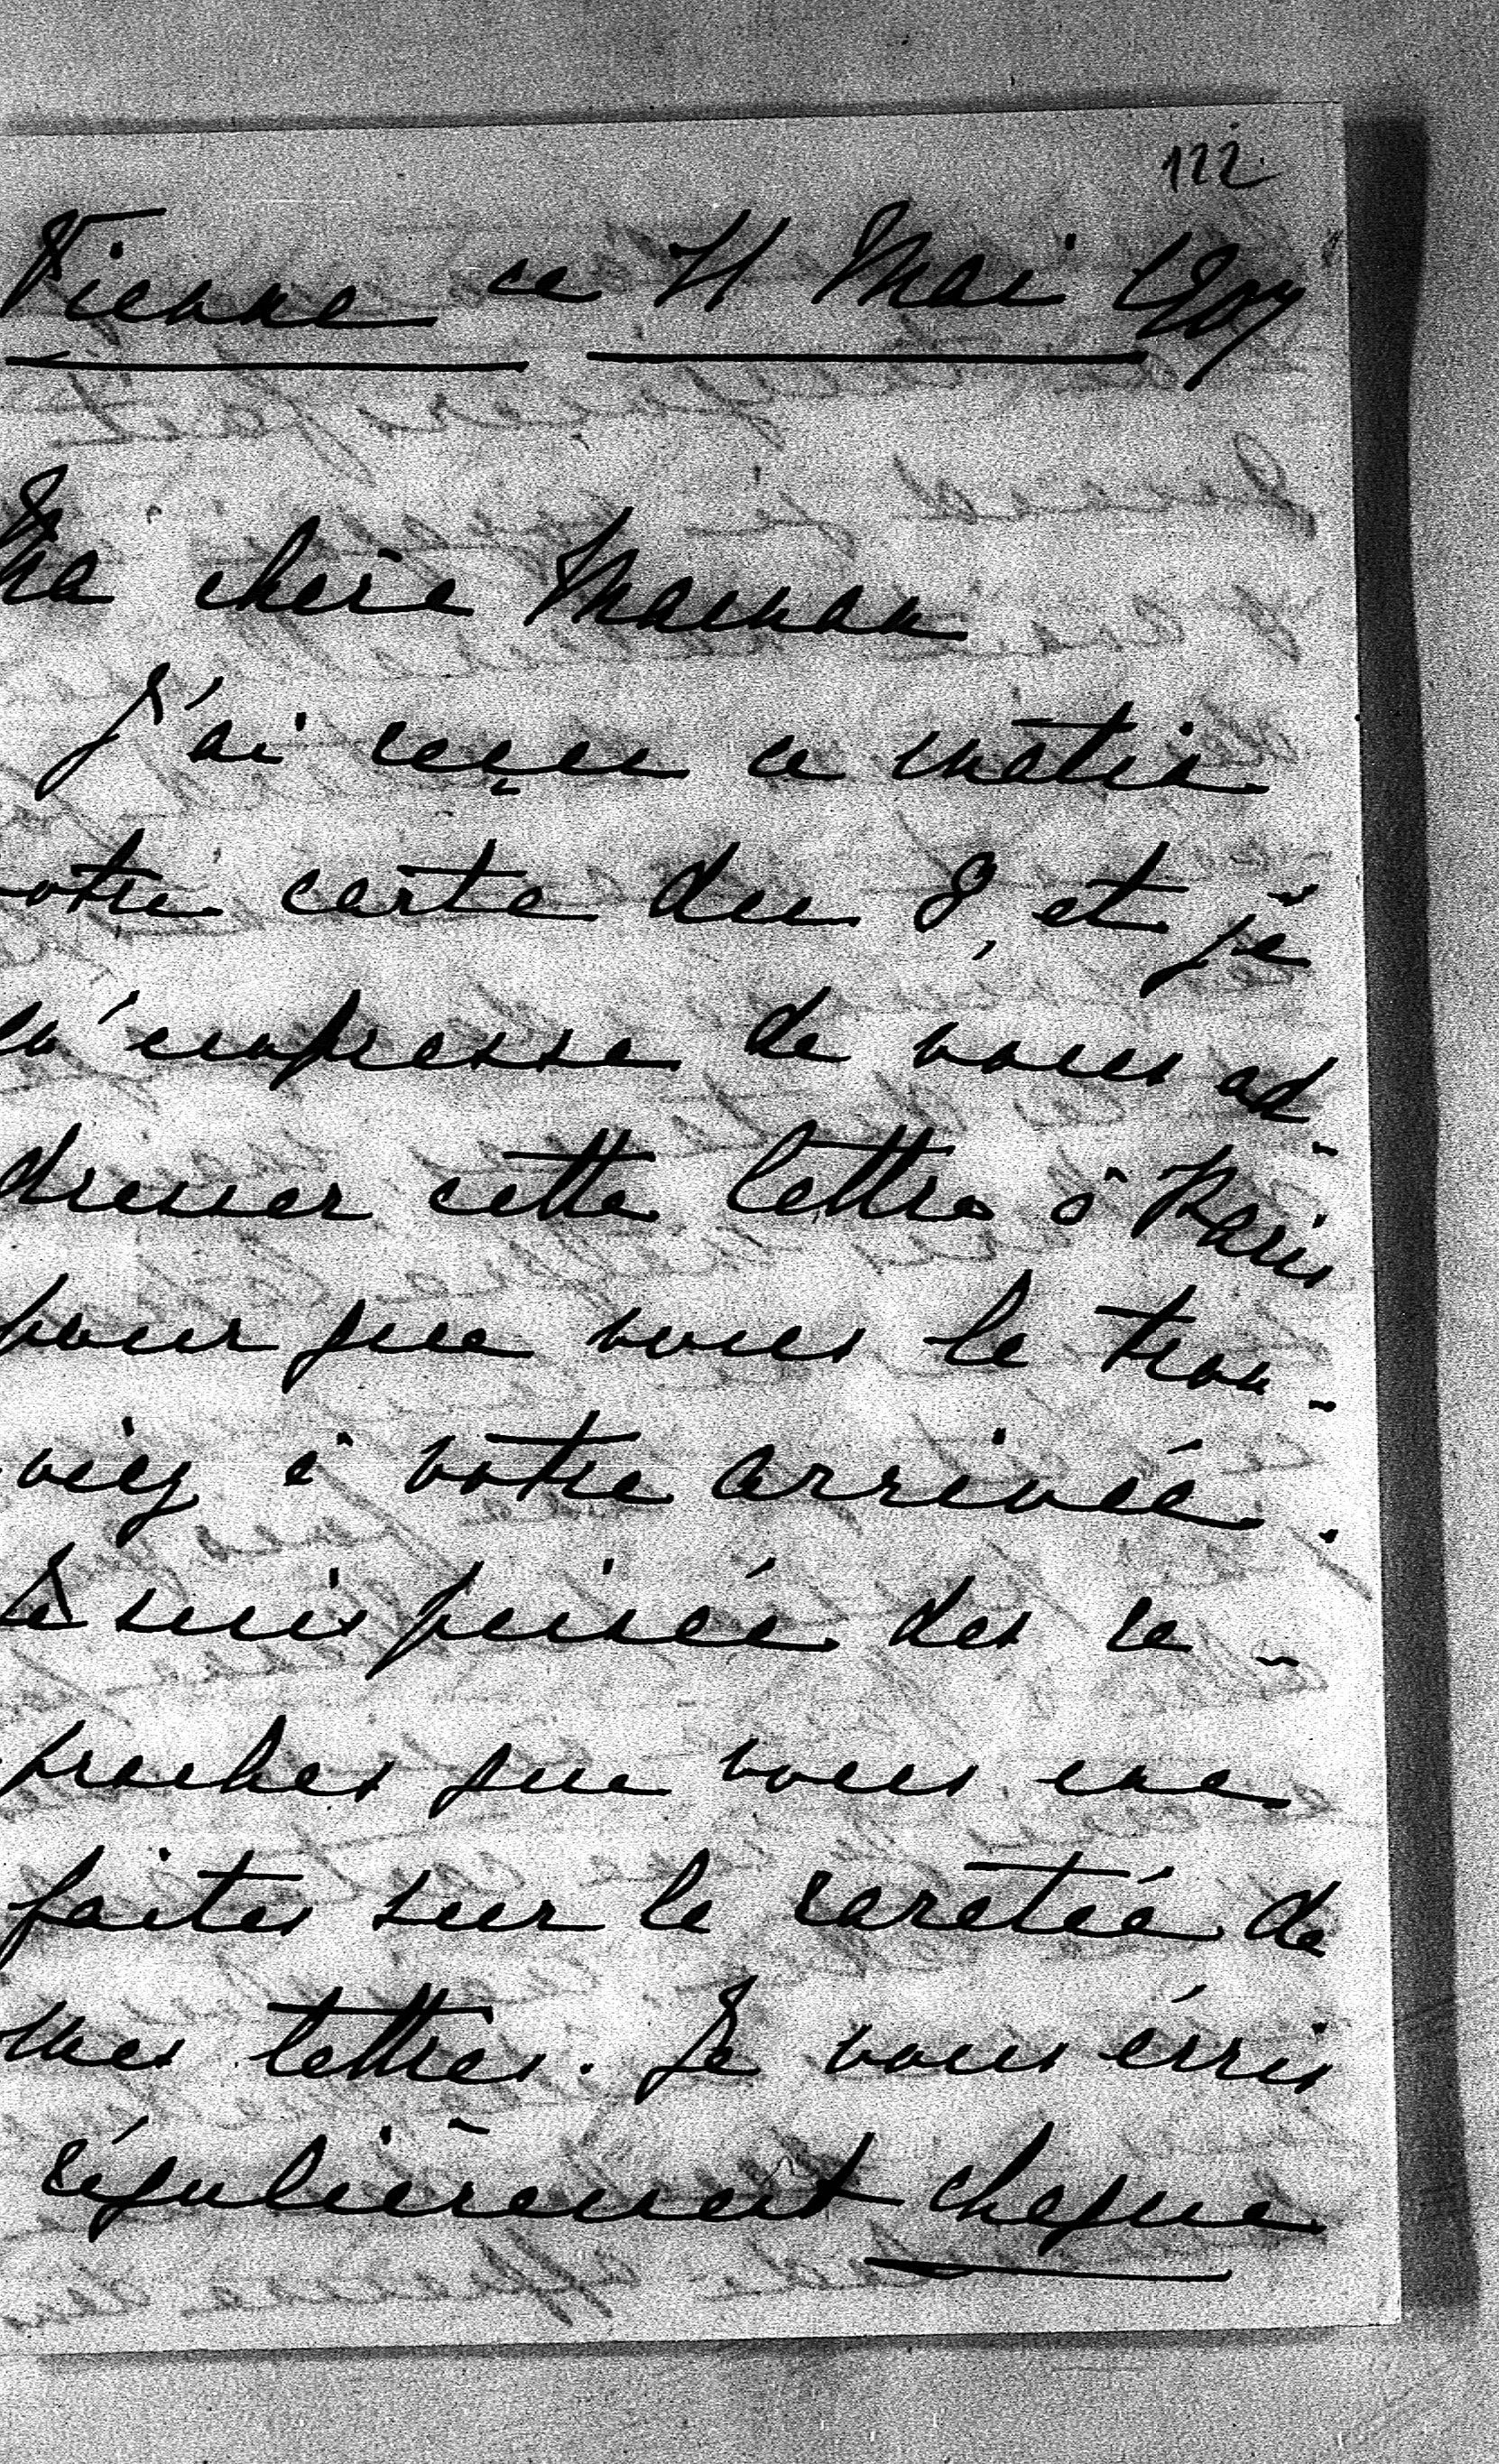 122.
Vienne ce 11 Mai 1907
Ma chère Maman
J'ai reçu ce matin
votre carte du 8, et je
m'empresse de vous ad-
dresser cette lettre à Paris
pour que vous la trou-
viez à votre arrivée.
Je suis peinée des re-
proches que vous me
faites sur la raretée de
mes lettres. Je vous écris
régulièrement chaque